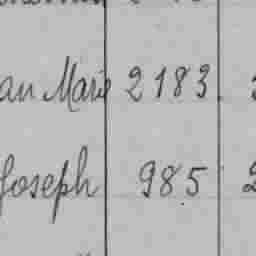 an Marie 2183
Joseph 985 2